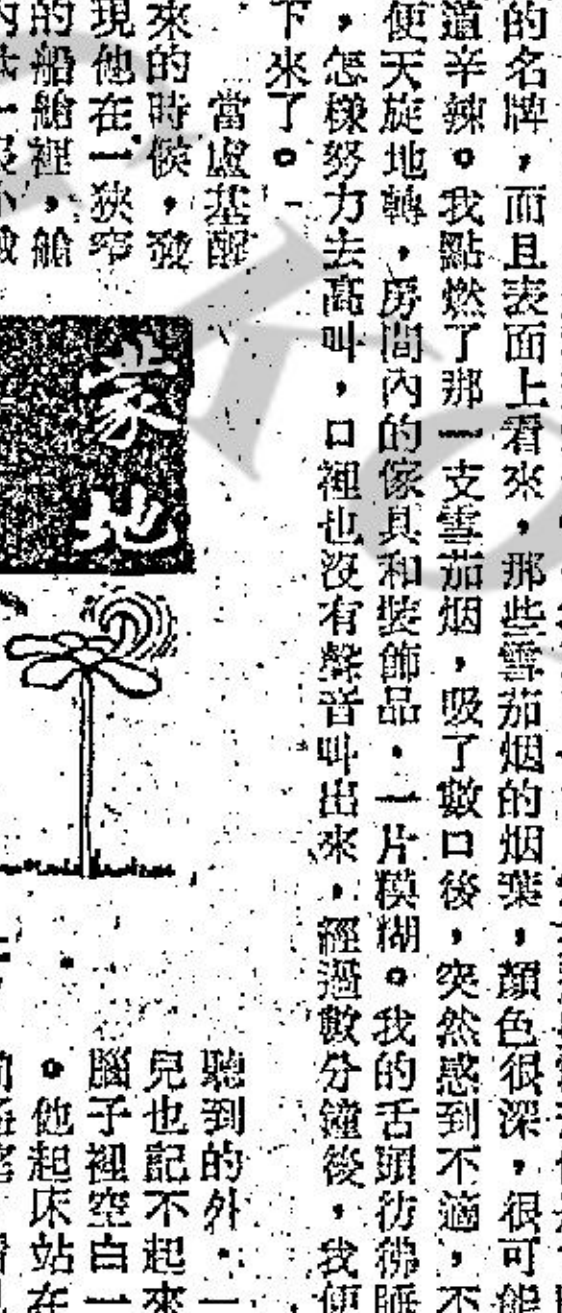 的名牌，而且表面上看來，那些雪茄烟的烟葉，顏色很深，很可能
道辛辣。我點燃了那一支雪茄烟，吸了數口後，突然感到不適，不
便天旋地轉，房間內的傢具和裝飾品，一片模糊。我的舌頭彷彿睡
，怎樣努力去高叫，口裡也沒有聲音叫出來，經過數分鐘後，我便
下來了。
當盧基醒
來的時候，發
現他在一狹窄
的船艙裡，艙
蒙地
聽到的外，一
兒也記不起來
腦子裡空白一
。他起床站在